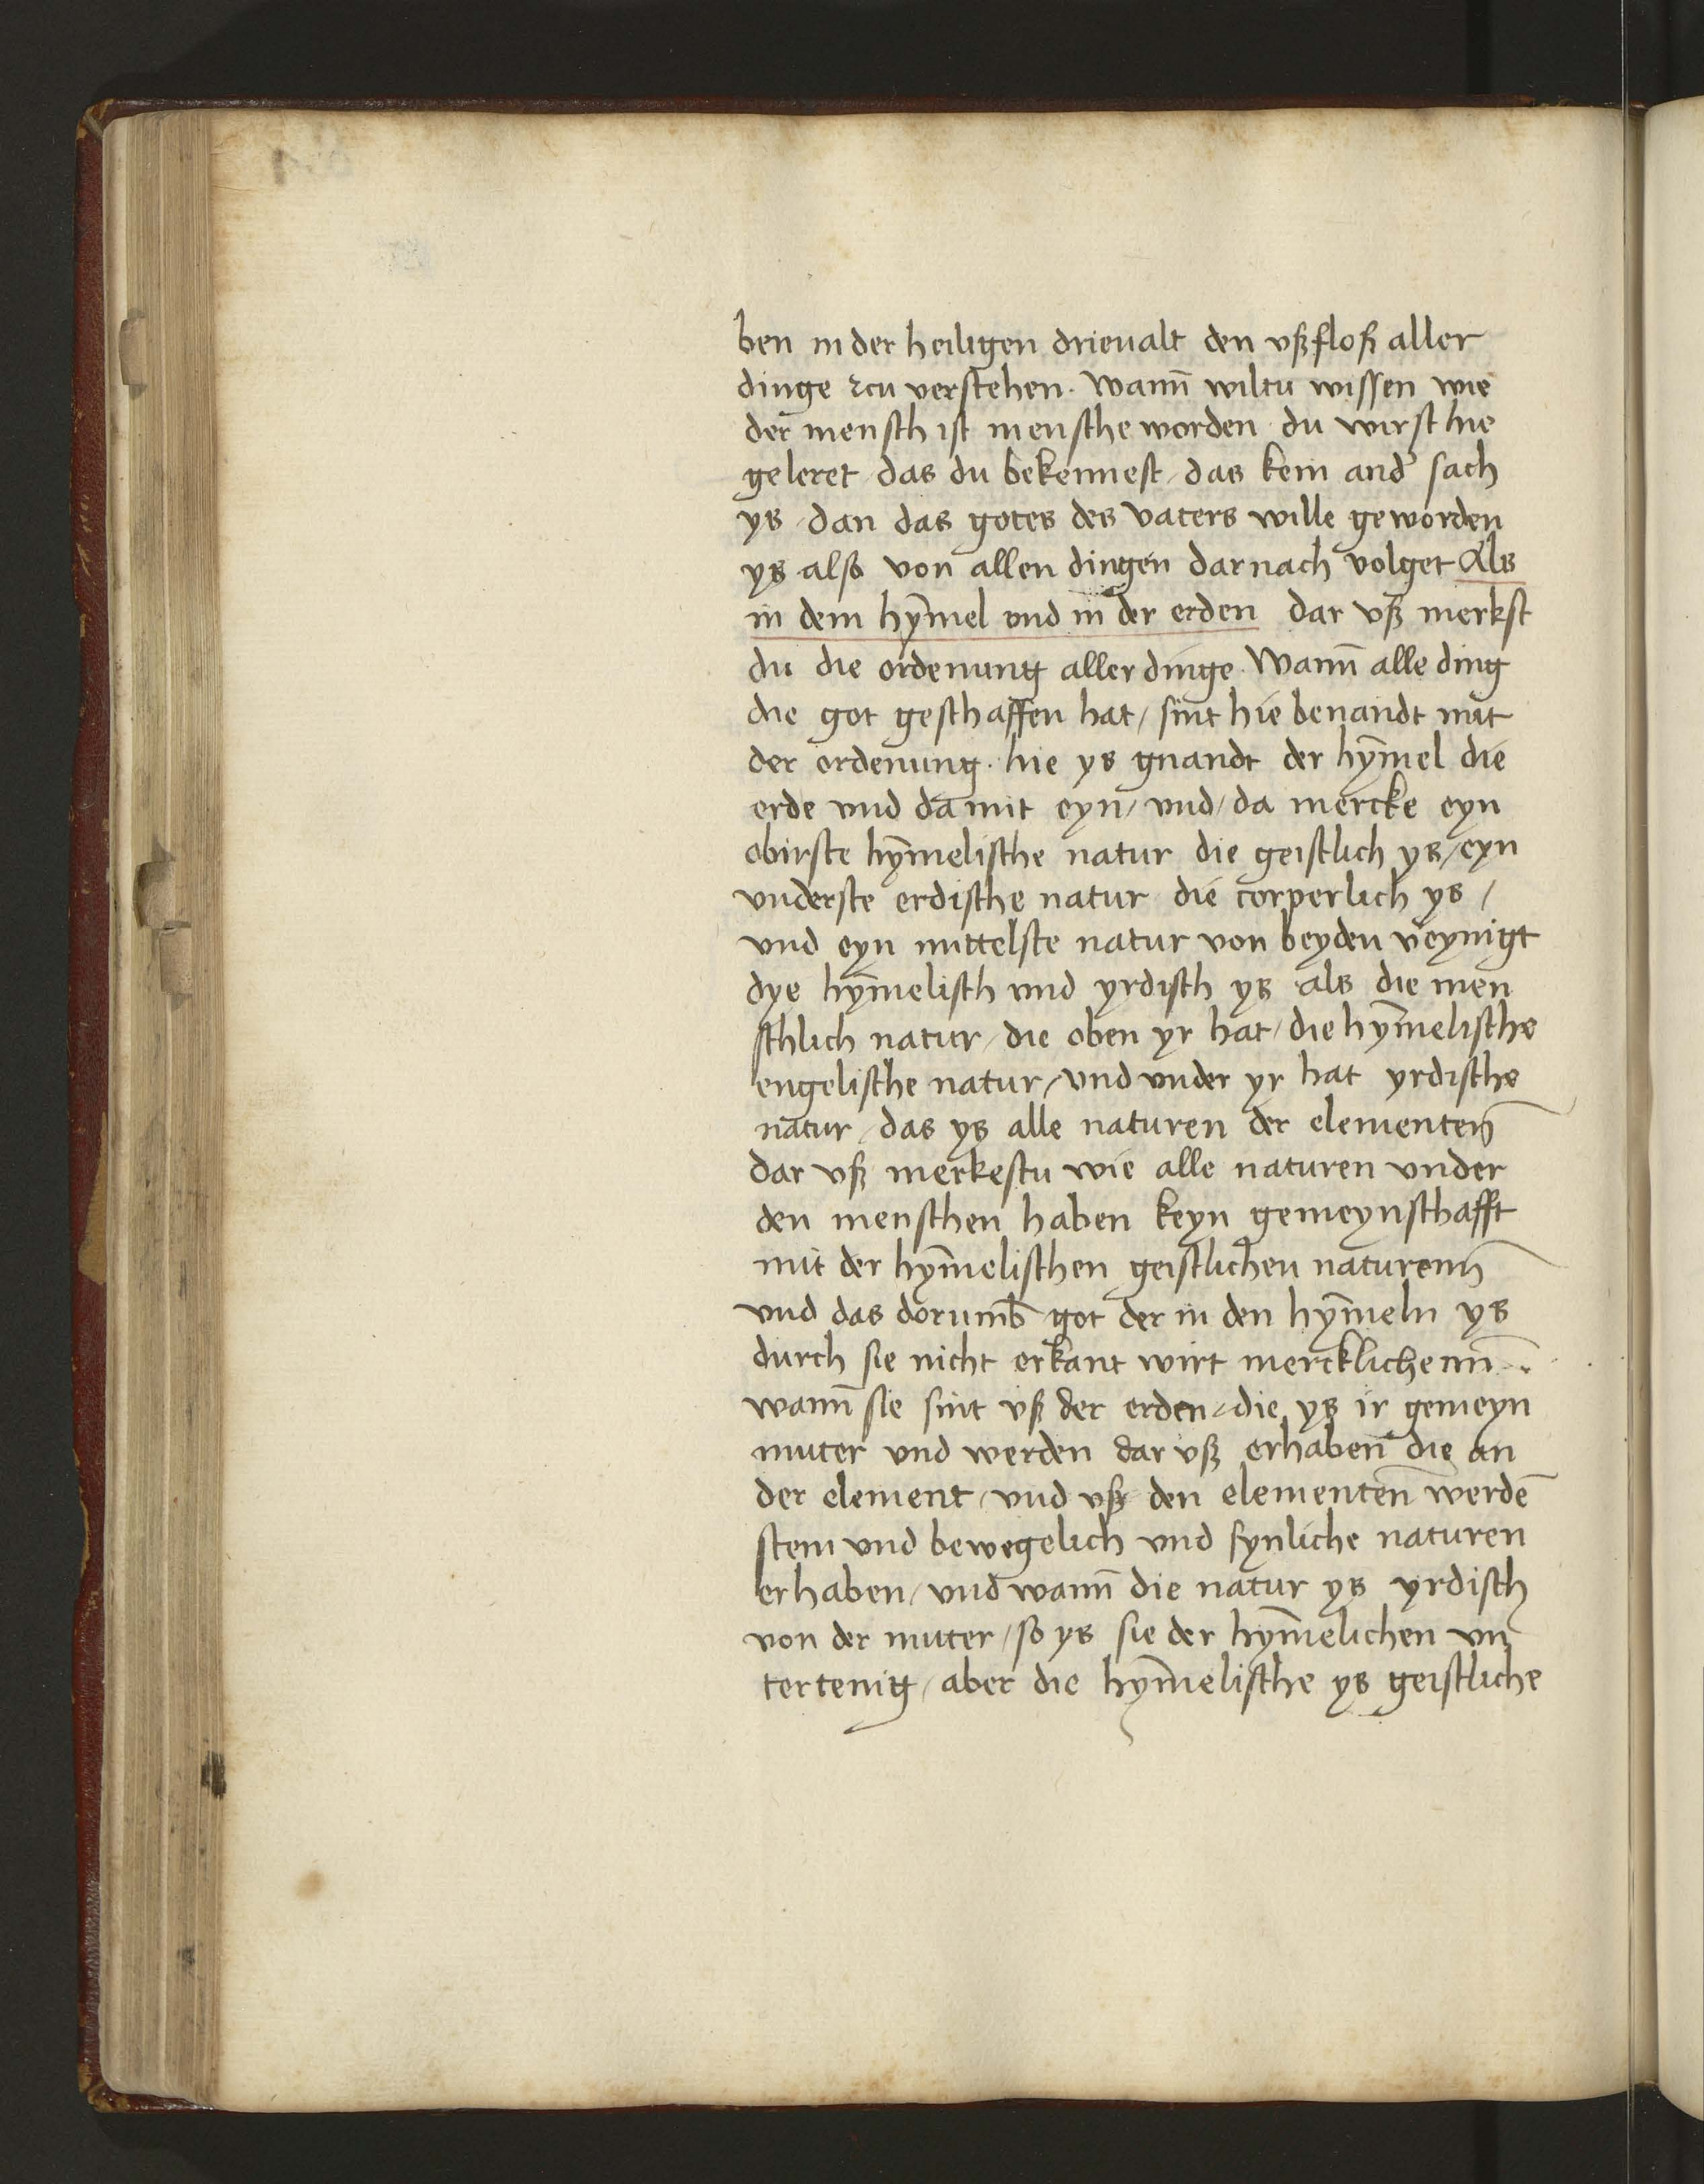 ben in der heiligen drieualt den vßfloß aller
dinge zcu verstehen. wann̄ wiltu wissen wie
der mensch ist mensche worden du wirst hie
geleret / das du bekennest / das kein and̕ sach
ys / dan das gotes des vaters wille geworden
ys also von allen dingen darnach volget Als
in dem hym̄el vnd in der erden dar vß merkst
du die ordenung aller dinge. Wann̄ alle ding
die got geschaffen hat / sint hie benandt mit
der ordenung. hie ys gnandt der hym̄el die
erde vnd da mit eyn / vnd / da mercke eyn
obirste hym̄elische natur die geistlich ys / eyn
vnderste erdische natur die corperlich ys /
vnd eyn mittelste natur von beyden v̕eynigt
dye hym̄elisch vnd yrdisch ys als die men
schlich natur / die oben yr hat / die hym̄elische
engelische natur / vnd vnder yr hat yrdische
natur / das ys alle naturen der elementen̄
dar vß merkestu wie alle naturen vnder
den menschen haben keyn gemeynschafft
mit der hym̄elischen geistlichen naturenn̄
vnd das dorumb̄ got der in den hym̄eln ys
durch sie nicht erkant wirt mercklichenn̄ .
wann̄ sie sint vß der erden / die ys ir gemeyn
muter vnd werden dar vß erhaben die an
der element / vnd vß den elementen̄ werdē
stein vnd bewegelich vnd synliche naturen
erhaben / vnd wann̄ die natur ys yrdisch
von der muter / so ys sie der hym̄elichen vn
tertenig / aber die hym̄elische ys geistliche